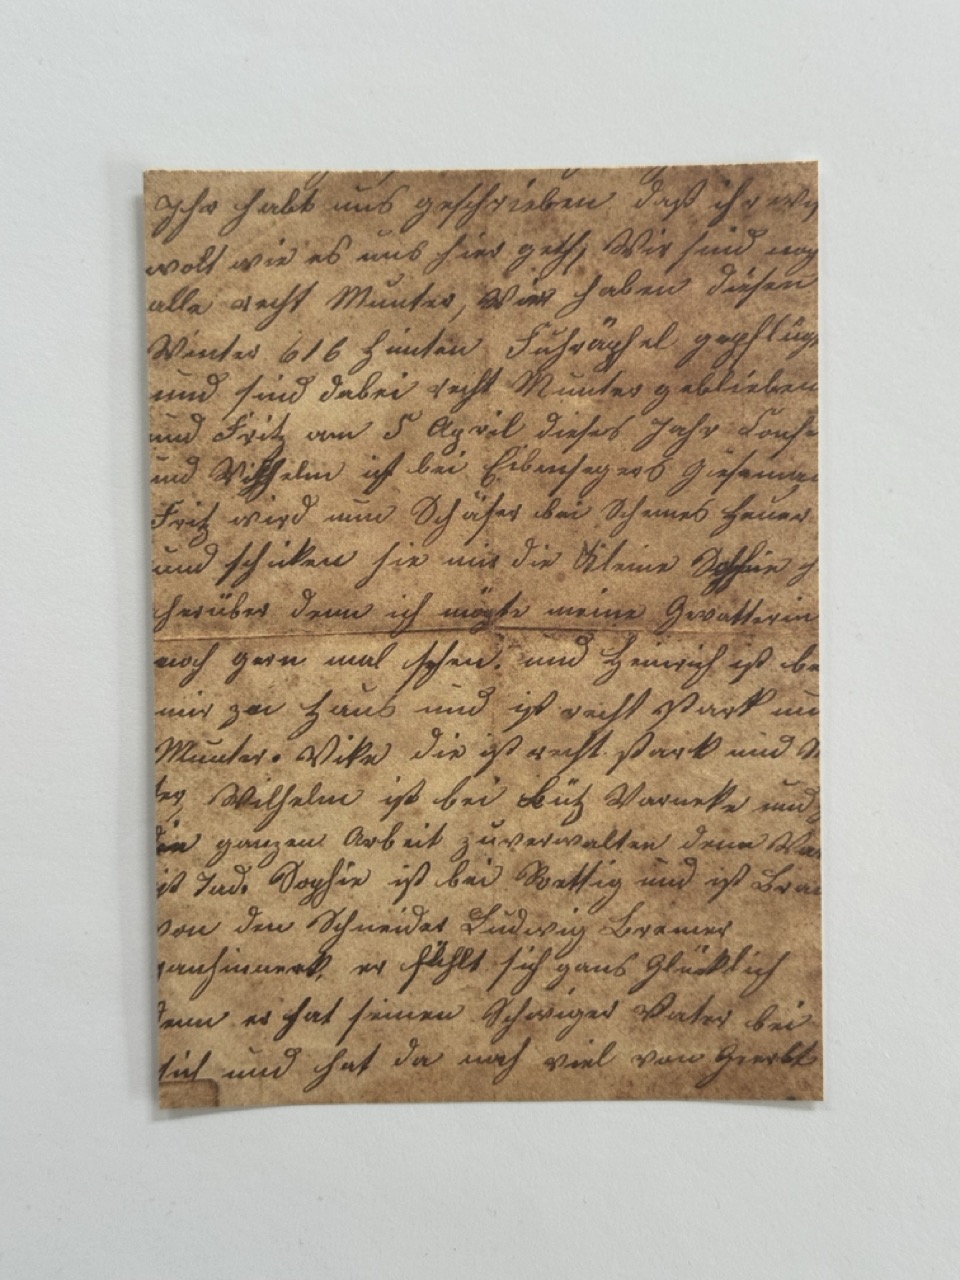 Ihr habt uns geschrieben daß ihr
wolt wie es uns hier geth, Wir sind noch
alle recht Munter, Wir haben diesen
Winter 616 Himten gepflüg
und sind dabei recht Munter geblieben
und Fritz am 5 April dieses Jahr Conf
und Wilhelm ist bei
Fritz wird nun Schäfer bei
und schiken sie mir die Kleine Sophie
herüber denn ich mögte meine Gevatterin
noch gern mal sehen. und Heinrich ist be
mir zu Haus und ist recht stark un
Munter. Vike die ist recht stark und
ter, Wilhelm ist bei Varneke und
die ganzen Arbeit zuverwalten denn Var
ist Tod. Sophie ist bei Wettig und ist Brau
von den Schneider Ludwig Bremer
er fühlt sich gans Glücklich
denn er hat seinen Schwiger Vater bei
sich und hat da noch viel von Geerbt